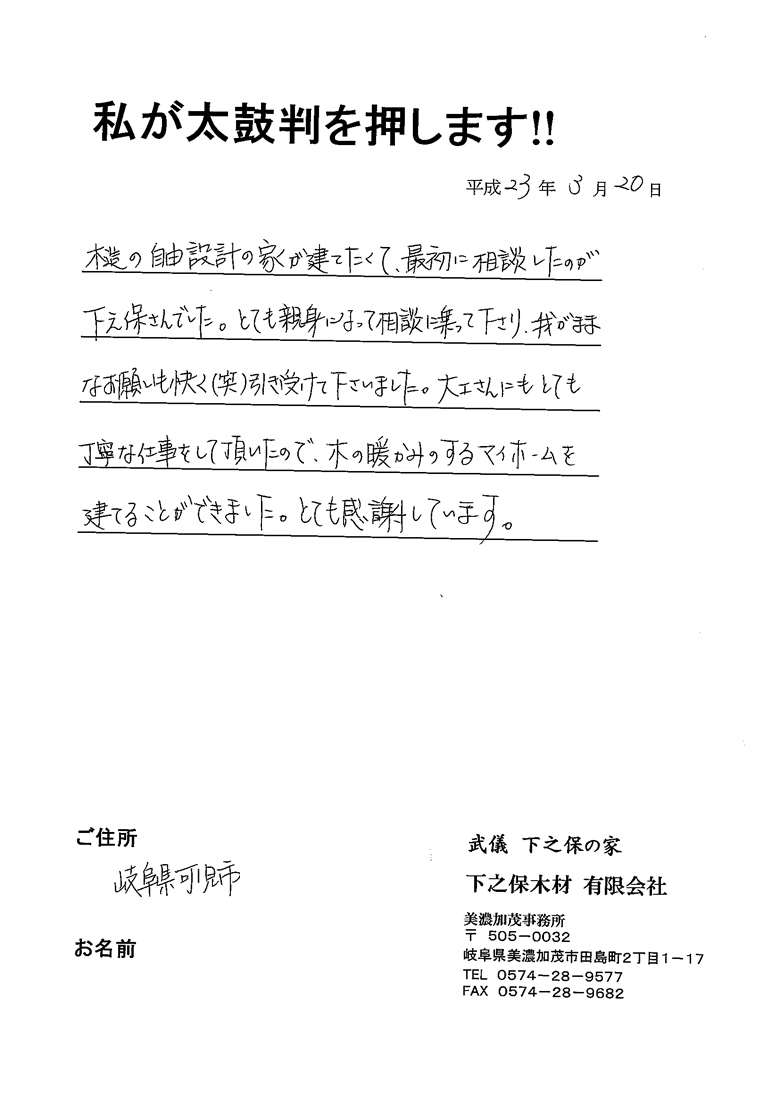 私が太鼓判を押します!!
平成23年 3月20日
木造の自由設計の家が建てたくて、最初に相談したのが
下之保さんでした。とても親身になって相談に乗って下さり、我がまま
なお願いも快く(笑)引き受けて下さいました。大工さんにもとても
丁寧な仕事をして頂いたので、木の暖かみのするマイホームを
建てることができました。とても感謝しています。
ご住所
岐阜県可児市
お名前
武儀 下之保の家
下之保木材 有限会社
美濃加茂事務所
〒 505-0032
岐阜県美濃加茂市田島町2丁目1-17
TEL 0574-28-9577
FAX 0574-28-9682